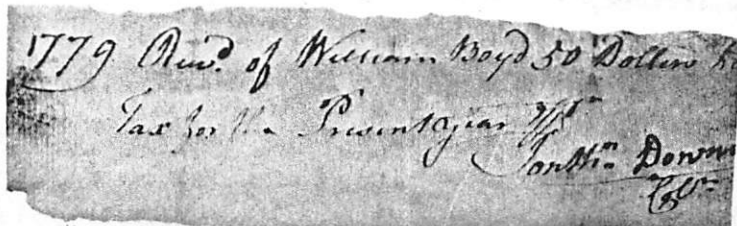 1779 Recvd. of William Boyd 50 Dollers
Tax for the Present year
Jonthn Downin